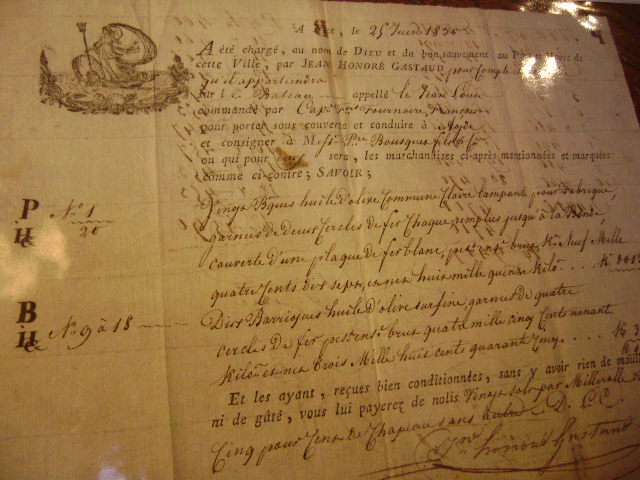 A , le 25 Juin 18
A été chargé, au nom de DIEU et du bon sauvement au Port et Havre de
cette Ville, par JEAN HONORÉ GASTAUD pour Compte
qu'il appartiendra
sur le Bateau appellé le Jean Louis
commandé par Cap.ne Fournaire, Français
pour porter sous couverte et conduire à Agde
et consigner à Mess.rs Bousquet fils
où qui pour sera, les marchandises ci-après mentionnées et marquées
comme ci-contre; SAVOIR;
P H& N.o 1 / 20
Vingt B.ques huile d'olive Commune Claire lampante pour fabrique,
garnies de deux Cercles de fer Chaque, remplies jusqu'à la Bonde,
couverte d'une plaque de fer blanc, pes. ens. brut K.os Neuf Mille
quatre Cents dix sept, et net huit mille quinze kilo. . . . K.
B H& N.os 9 à 18
Dix Barriques huile d'olive surfine, garnies de quatre
cercles de fer pes. ens. brut quatre mille cinq Cents nonant
kilo. et net trois Mille huit cents quarant Cinq . . . . K.
Et les ayant, reçues bien conditionnées, sans y avoir rien de mouil
ni de gâté, vous lui payerez de nolis Vingt sols par Millerolle
Cinq pour Cent de Chapeau sans autre.
Jean Honoré Gastaud